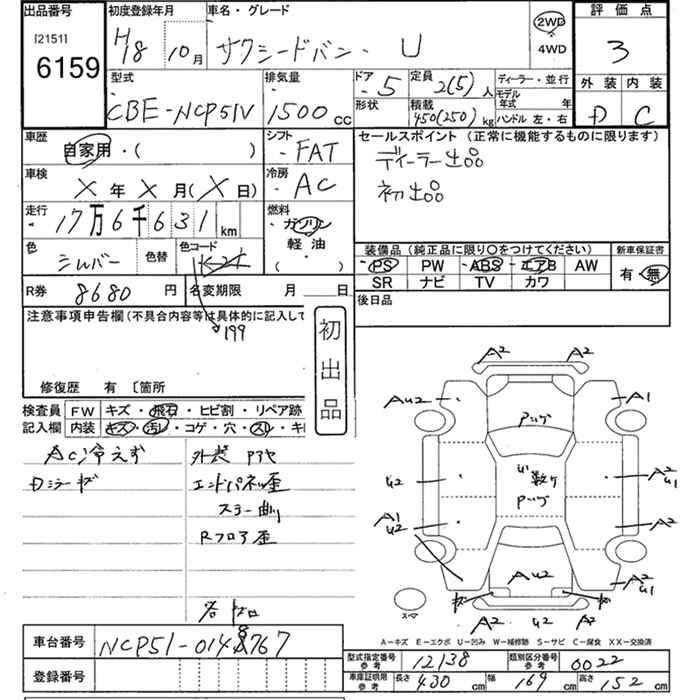 出品番号
[2151]
6159
初度登録年月
H18 10月
車名・グレード
サクシードバン・ U
2WD
4WD
評価点
3
外装 内装
D C
型式
CBE-NCP51V
排気量
1500 cc
ドア
5
形状
定員
2(5)人
積載
450(250)kg
ディーラー・並行
モデル年式 年
ハンドル 左・右
車歴
自家用・( )
シフト
FAT
セールスポイント (正常に機能するものに限ります)
ディーラー出品
初出品
車検
X 年 X 月(X 日)
冷房
AC
走行
17万6千631km
燃料
ガソリン
軽油
( )
色
シルバー
色替
色コード
199
装備品 (純正品に限り○をつけてください)
PS PW ABS エアB AW
SR ナビ TV カワ
新車保証書
有・無
R券 8680 円
名変期限 月 日
後日品
注意事項申告欄(不具合内容等は具体的に記入して
初出品
修復歴 有 [箇所
検査員記入欄
FW キズ・飛石・ヒビ割・リペア跡
内装 キズ・汚レ・コゲ・穴・スレ・キ
AC冷えず
外装
エンドパネル歪
Rフロア歪
A2 A2
AU2 A1
U2 A2 U1
A1 U2 A2
AU2
A2 U1
A2 U2 A2
スペア
A−キズ E−エクボ U−凹み W−補修跡 S−サビ C−腐食 XX−交換済
車台番号
NCP51-0148767
登録番号
型式指定番号 参考 12138
類別区分番号 参考 0022
車庫証明用 参考 長さ 430 cm 幅 169 cm 高さ 152 cm